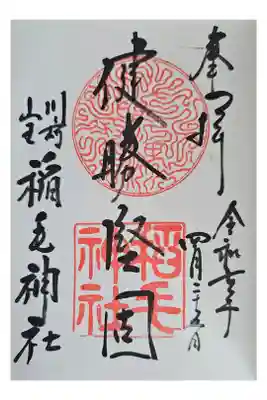 奉拝
令和六年
四月二十五日
健勝堅固
川崎
山王
稲毛神社
稲毛
神社